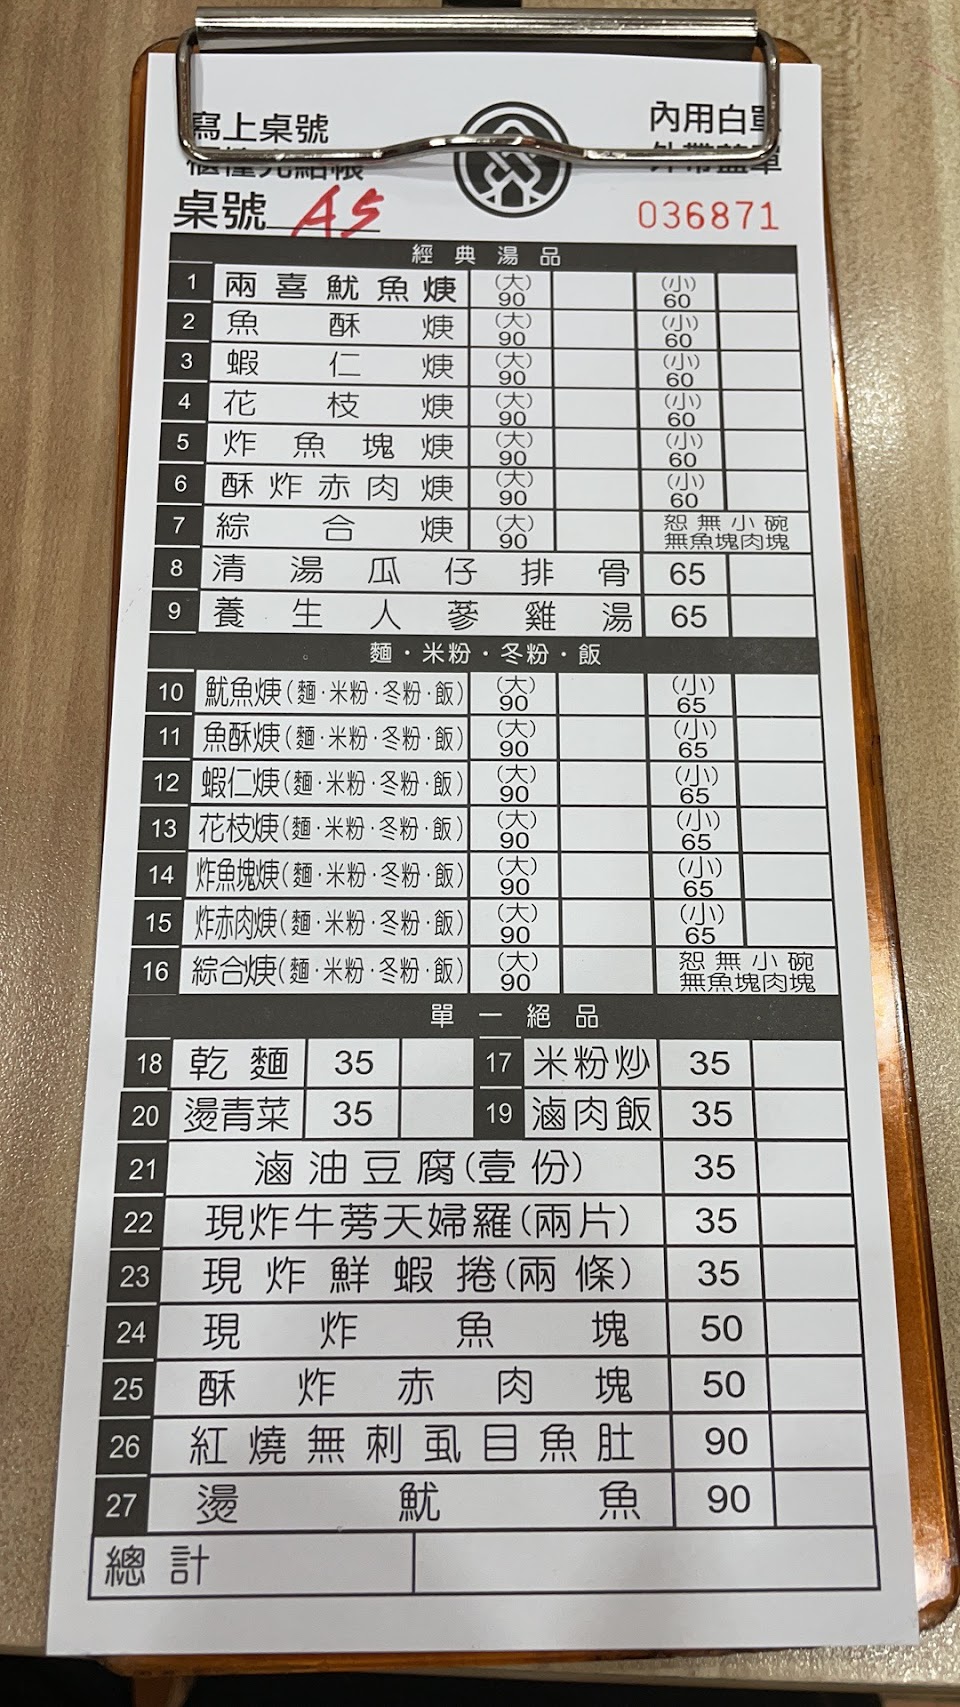 寫上桌號
內用白單
櫃檯先點帳
外帶藍單
桌號 A5
036871
經典湯品
1 兩喜魷魚焿 (大)90 (小)60
2 魚酥焿 (大)90 (小)60
3 蝦仁焿 (大)90 (小)60
4 花枝焿 (大)90 (小)60
5 炸魚塊焿 (大)90 (小)60
6 酥炸赤肉焿 (大)90 (小)60
7 綜合焿 (大)90 恕無小碗 無魚塊肉塊
8 清湯瓜仔排骨 65
9 養生人蔘雞湯 65
麵·米粉·冬粉·飯
10 魷魚焿(麵·米粉·冬粉·飯) (大)90 (小)65
11 魚酥焿(麵·米粉·冬粉·飯) (大)90 (小)65
12 蝦仁焿(麵·米粉·冬粉·飯) (大)90 (小)65
13 花枝焿(麵·米粉·冬粉·飯) (大)90 (小)65
14 炸魚塊焿(麵·米粉·冬粉·飯) (大)90 (小)65
15 炸赤肉焿(麵·米粉·冬粉·飯) (大)90 (小)65
16 綜合焿(麵·米粉·冬粉·飯) (大)90 恕無小碗 無魚塊肉塊
單一絕品
18 乾麵 35 17 米粉炒 35
20 燙青菜 35 19 滷肉飯 35
21 滷油豆腐(壹份) 35
22 現炸牛蒡天婦羅(兩片) 35
23 現炸鮮蝦捲(兩條) 35
24 現炸魚塊 50
25 酥炸赤肉塊 50
26 紅燒無刺虱目魚肚 90
27 燙魷魚 90
總計